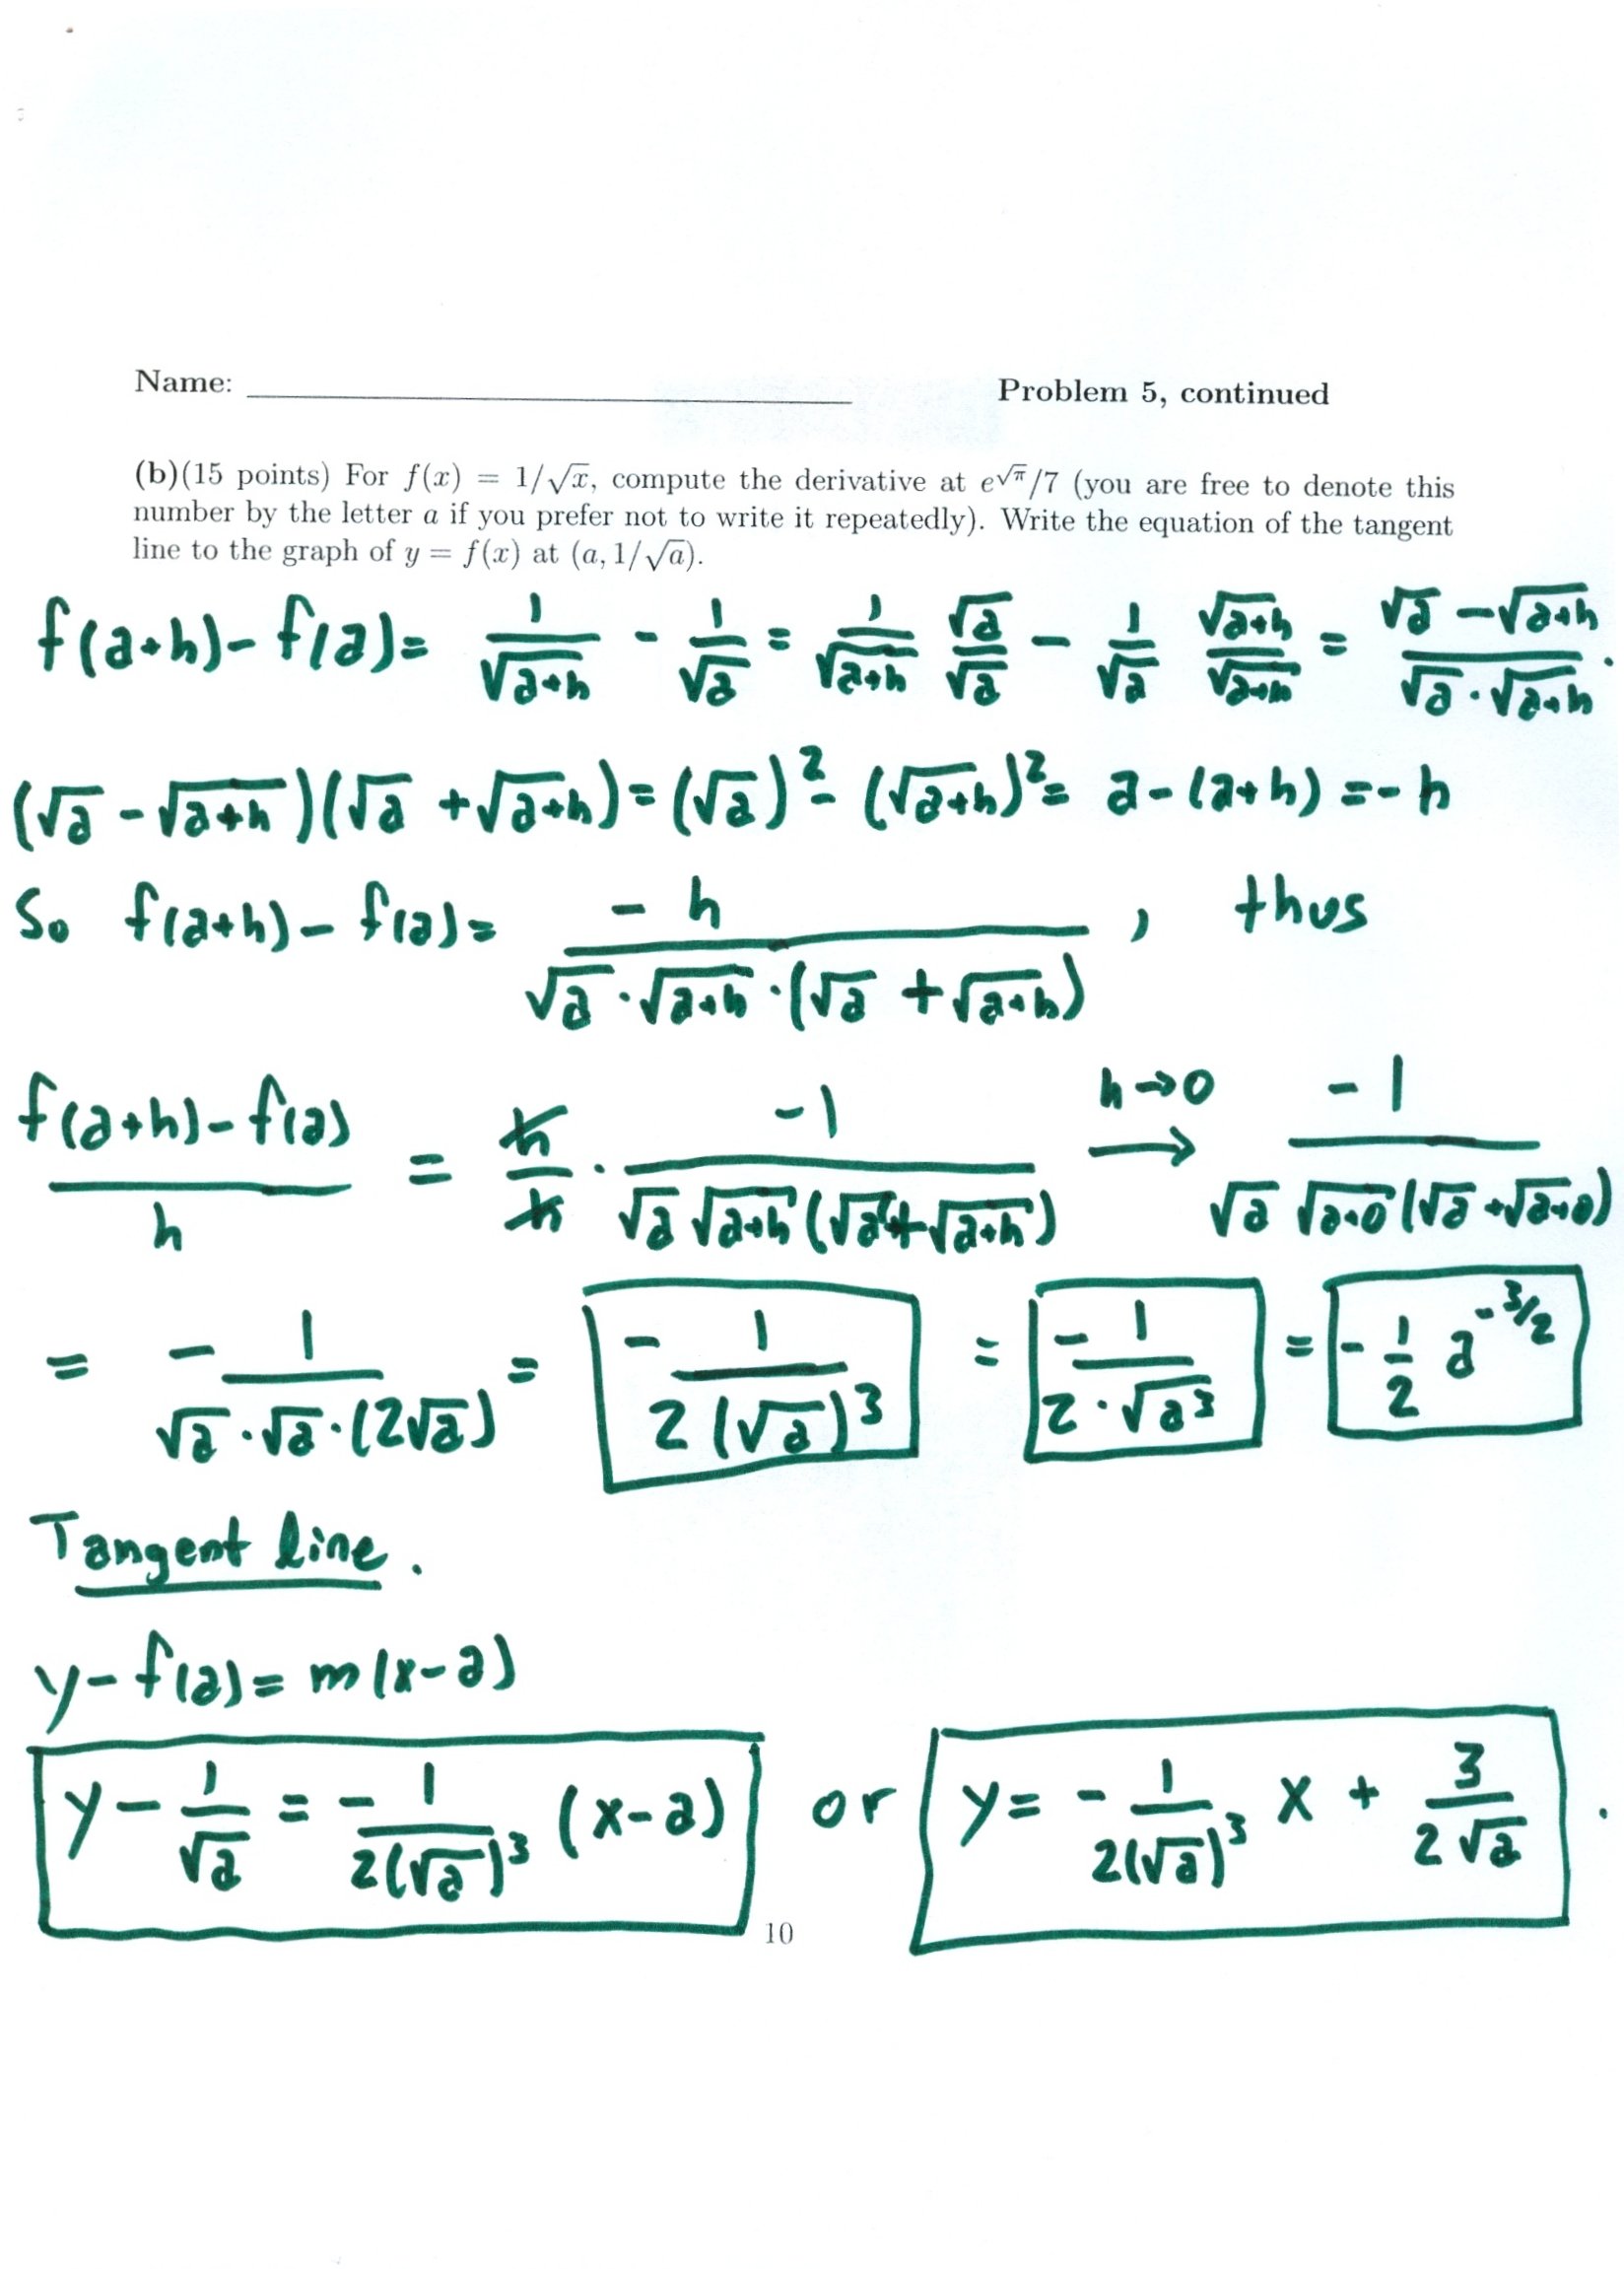 Name: Problem 5, continued
(b)(15 points) For f(x) = 1/√x, compute the derivative at e^√π/7 (you are free to denote this
number by the letter a if you prefer not to write it repeatedly). Write the equation of the tangent
line to the graph of y = f(x) at (a, 1/√a).
f(a+h)-f(a)= 1/√(a+h) - 1/√a = 1/√(a+h) √a/√a - 1/√a √(a+h)/√(a+h) = (√a-√(a+h))/(√a·√(a+h)).
(√a-√(a+h))(√a+√(a+h))=(√a)²-(√(a+h))²= a-(a+h)=-h
So f(a+h)-f(a)= -h/(√a·√(a+h)·(√a+√(a+h))), thus
(f(a+h)-f(a))/h = h/h · -1/(√a√(a+h)(√a+√(a+h))) h→0 → -1/(√a√(a+0)(√a+√(a+0)))
= -1/(√a·√a·(2√a)) = -1/(2(√a)³) = -1/(2·√a³) = -1/2 a^(-3/2)
Tangent line.
y-f(a)=m(x-a)
y-1/√a = -1/(2(√a)³) (x-a) or y= -1/(2(√a)³) x + 3/(2√a).
10